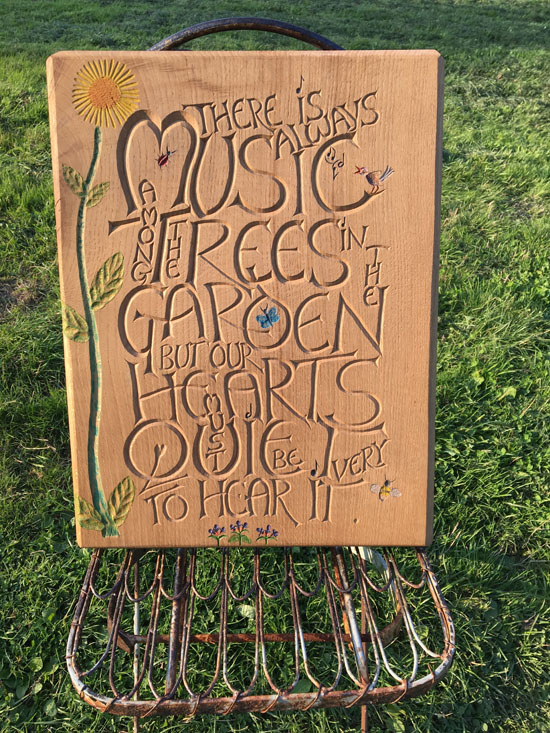 THERE IS
ALWAYS
MUSIC
AMONG THE TREES IN THE
GARDEN
BUT OUR
HEARTS
MUST BE VERY
QUIET
TO HEAR IT.